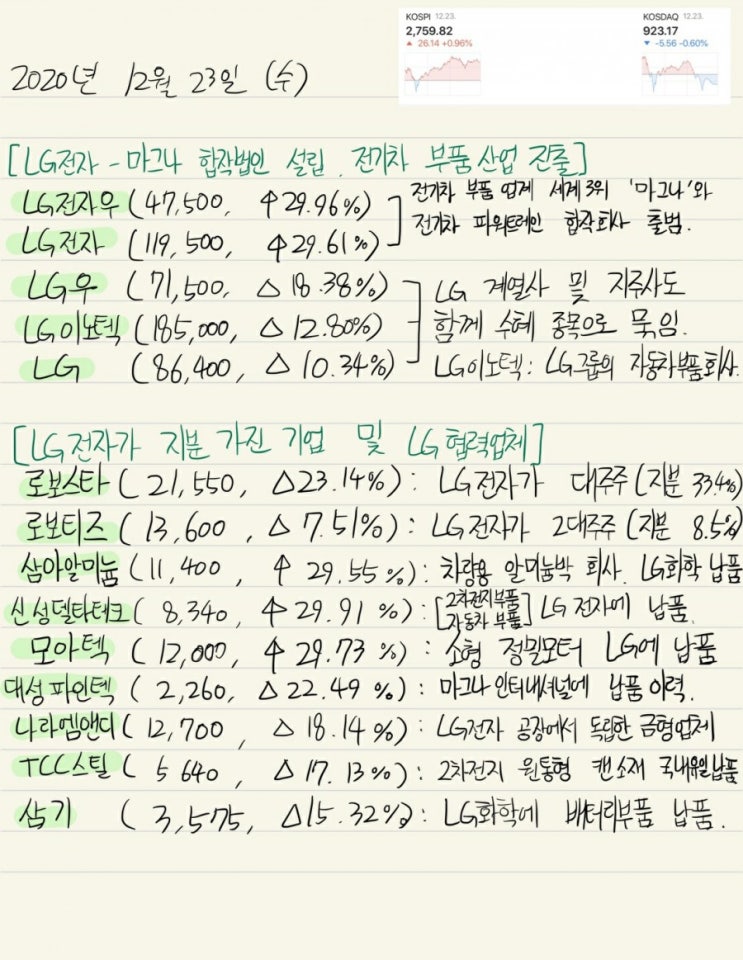 KOSPI 12.23.
2,759.82
▲ 26.14 +0.96%
KOSDAQ 12.23.
923.17
▼ -5.56 -0.60%
2020년 12월 23일 (수)
[LG전자 - 마그나 합작법인 설립. 전기차 부품 산업 진출]
LG전자우 (47,500, ↑29.96%)
LG전자 (119,500, ↑29.61%)
전기차 부품 업계 세계 3위 '마그나'와
전기차 파워트레인 합작회사 출범.
LG우 (71,500, △ 18.38%)
LG이노텍 (185,000, △ 12.80%)
LG (86,400, △ 10.34%)
LG 계열사 및 지주사도
함께 수혜 종목으로 묶임.
LG이노텍: LG그룹의 자동차부품회사.
[LG전자가 지분 가진 기업 및 LG협력업체]
로보스타 (21,550, △23.14%): LG전자가 대주주 (지분 33.4%)
로보티즈 (13,600, △ 7.51%): LG전자가 2대주주 (지분 8.5%)
삼아알미늄 (11,400, ↑ 29.55%): 차량용 알미늄박 회사. LG화학 납품
신성델타테크 (8,340, ↑29.91%): [2차전지부품 자동차 부품] LG전자에 납품.
모아텍 (12,000, ↑ 29.73%): 소형 정밀모터 LG에 납품
대성파인텍 (2,260, △ 22.49%): 마그나인터내셔널에 납품 이력.
나라엠앤디 (12,700, △ 18.14%): LG전자 공장에서 독립한 금형업체
TCC스틸 (5,640, △ 17.13%): 2차전지 원통형 캔소재 국내유일납품
삼기 (3,575, △15.32%): LG화학에 배터리부품 납품.